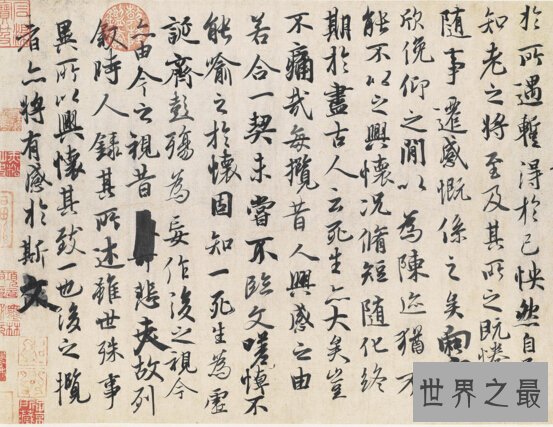 於所遇蹔得於己怏然自
知老之將至及其所之既惓
随事遷感慨係之矣向
欣俛仰之閒以為陳迹猶不
能不以之興懷況脩短随化終
期於盡古人云死生亦大矣豈
不痛哉每攬昔人興感之由
若合一契未嘗不臨文嗟悼不
能喻之於懷固知一死生為虛
誕齊彭殤為妄作後之視今
亦由今之視昔悲夫故列
叙時人録其所述雖世殊事
異所以興懷其致一也後之攬
者亦將有感於斯文
世界之最